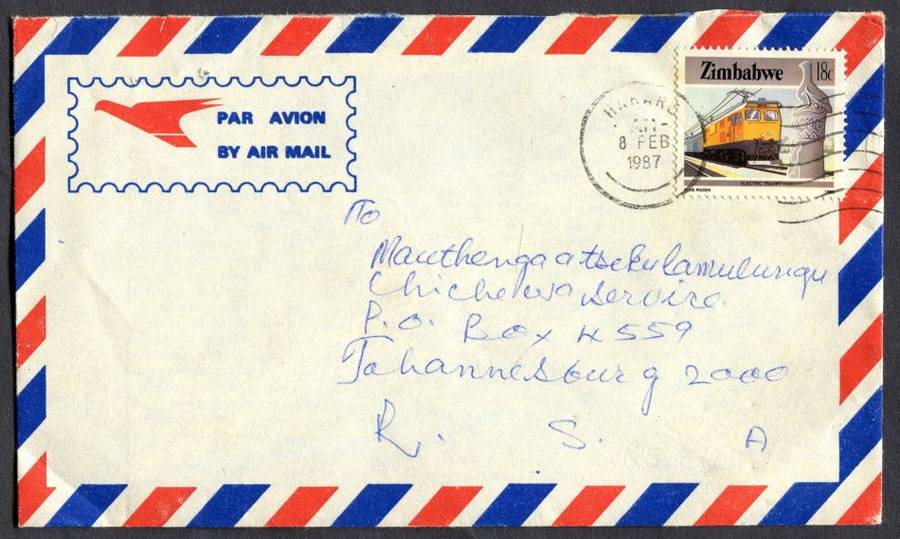 PAR AVION
BY AIR MAIL
Zimbabwe 18c
HARARE
8 FEB
1987
ELECTRIC TRAIN
To
Mauthengaatsekulamulungu
Chichewa Service
P.O. Box 4559
Johannesburg 2000
R. S. A